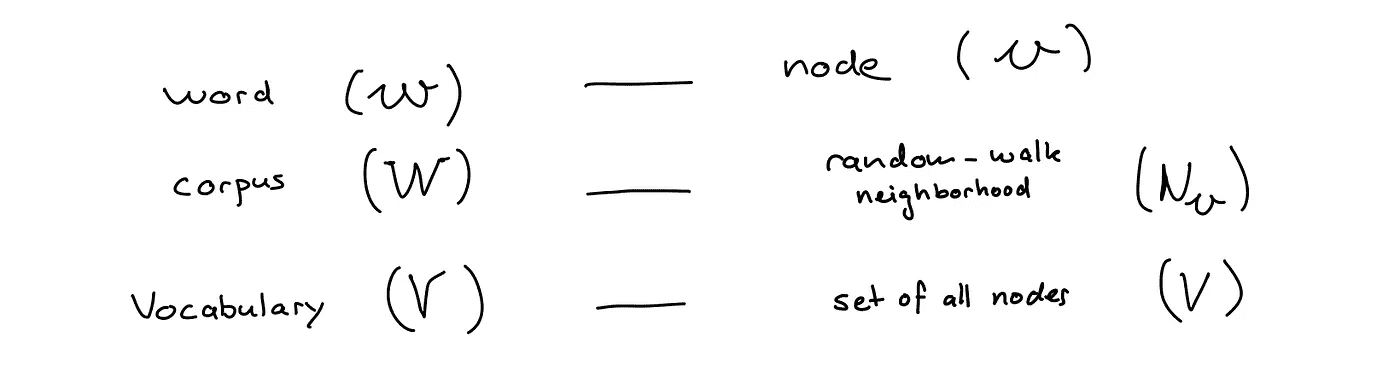 word (w) — node (v)
corpus (W) — random-walk
neighborhood (N_v)
Vocabulary (V) — set of all nodes (V)